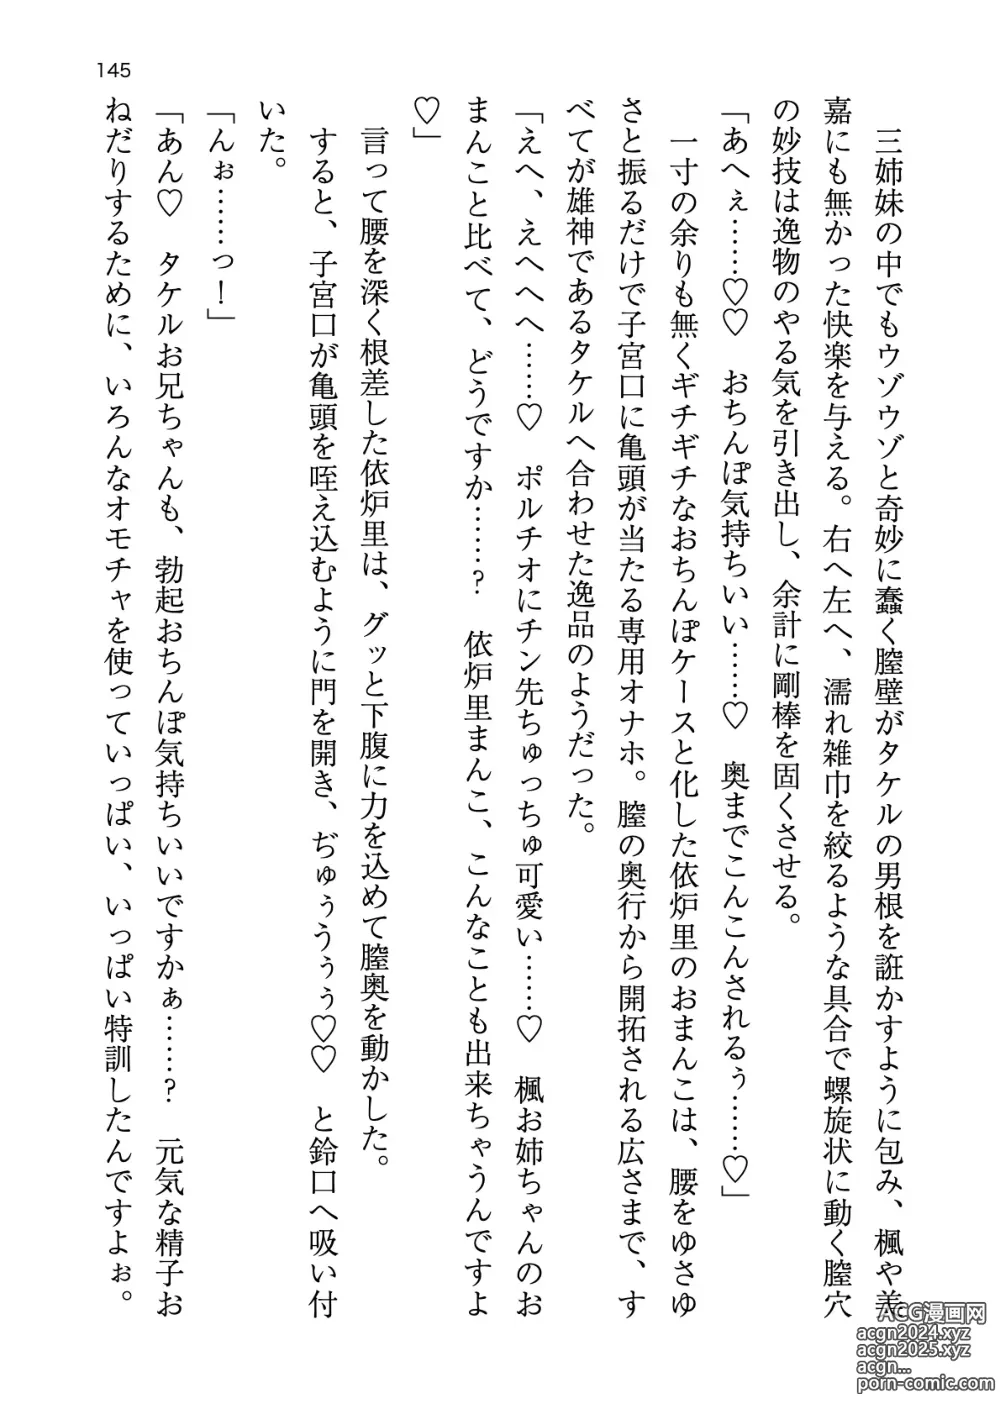 145
三姉妹の中でもウゾウゾと奇妙に蠢く膣壁がタケルの男根を誑かすように包み、楓や美
嘉にも無かった快楽を与える。右へ左へ、濡れ雑巾を絞るような具合で螺旋状に動く膣穴
の妙技は逸物のやる気を引き出し、余計に剛棒を固くさせる。
「あへぇ……♡♡　おちんぽ気持ちいい……♡　奥までこんこんされるぅ……♡」
一寸の余りも無くギチギチなおちんぽケースと化した依炉里のおまんこは、腰をゆさゆ
さと振るだけで子宮口に亀頭が当たる専用オナホ。膣の奥行から開拓される広さまで、す
べてが雄神であるタケルへ合わせた逸品のようだった。
「えへ、えへへへ……♡　ポルチオにチン先ちゅっちゅ可愛い……♡　楓お姉ちゃんのお
まんこと比べて、どうですか……？　依炉里まんこ、こんなことも出来ちゃうんですよ
♡」
言って腰を深く根差した依炉里は、グッと下腹に力を込めて膣奥を動かした。
すると、子宮口が亀頭を咥え込むように門を開き、ぢゅぅうぅぅ♡♡　と鈴口へ吸い付
いた。
「んぉ……っ！」
「あん♡　タケルお兄ちゃんも、勃起おちんぽ気持ちいいですかぁ……？　元気な精子お
ねだりするために、いろんなオモチャを使っていっぱい、いっぱい特訓したんですよぉ。
ACG漫画网
acgn2024.xyz
acgn2025.xyz
acgn...
porn-comic.com